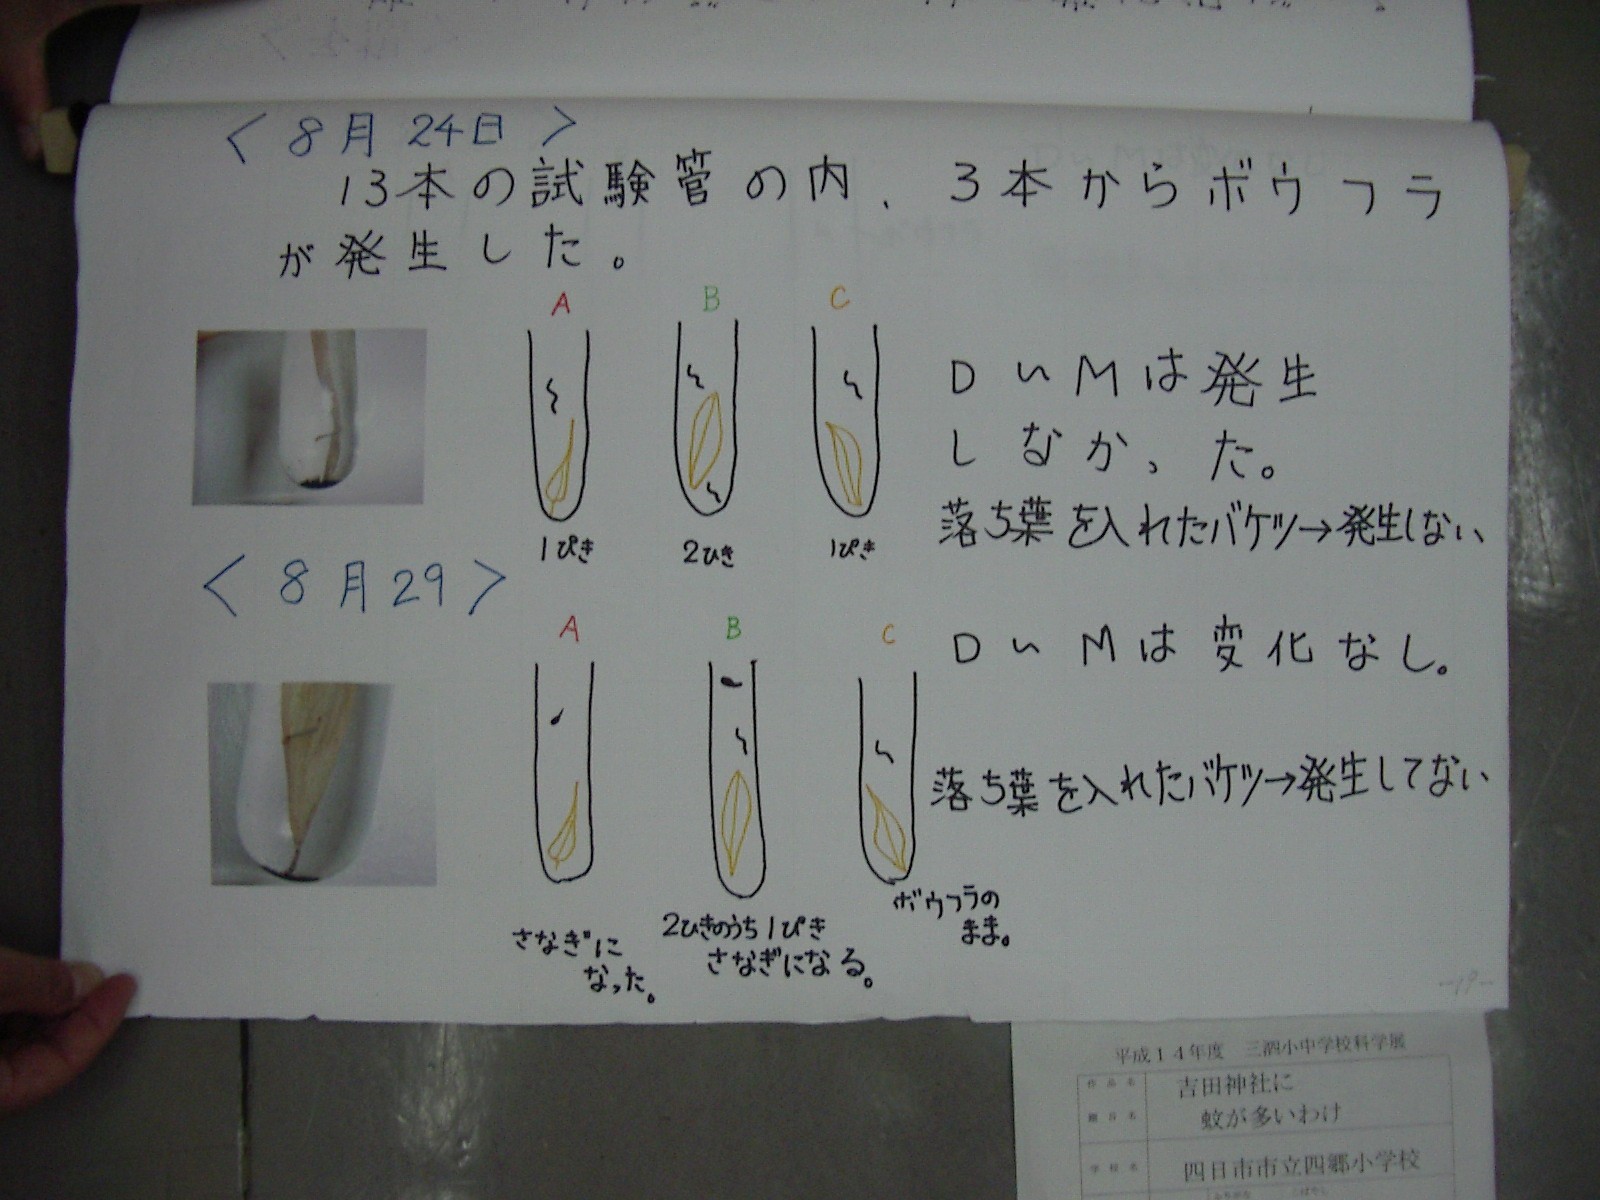 < 8月24日 >
13本の試験管の内、3本からボウフラ
が発生した。
A B C
D〜Mは発生
しなかった。
1ぴき 2ひき 1ぴき
落ち葉を入れたバケツ→発生しない
< 8月29 >
A B C
D〜Mは変化なし。
落ち葉を入れたバケツ→発生してない
さなぎに
なった。
2ひきのうち1ぴき
さなぎになる。
ボウフラの
まま。
平成14年度 三泗小中学校科学展
作品名 吉田神社に
題目名 蚊が多いわけ
学校名 四日市市立四郷小学校